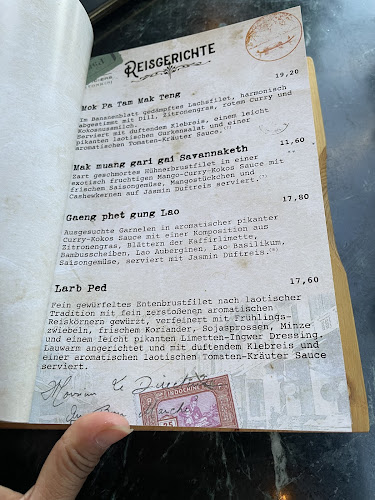 REISGERICHTE
Mok Pa Tam Mak Teng
19,20
Im Bananenblatt gedämpftes Lachsfilet, harmonisch
abgestimt mit Dill, Zitronengras, rotem Curry und
Kokosnussmilch.
Serviert mit duftendem Klebreis, einem leicht
pikanten laotischen Gurkensalat und einer
aromatischen Tomaten-Kräuter Sauce.
Mak muang gari gai Savannaketh
11,60
Zart geschmortes Hühnerbrustfilet in einer
exotisch fruchtigen Mango-Curry-Kokos Sauce mit
frischem Saisongemüse, Mangostückchen und
Cashewkernen auf Jasmin Duftreis serviert.
Gaeng phet gung Lao
17,80
Ausgesuchte Garnelen in aromatischer pikanter
Curry-Kokos Sauce mit einer Komposition aus
Zitronengras, Blättern der Kaffirlimette,
Bambusscheiben, Lao Auberginen, Lao Basilikum,
Saisongemüse, serviert mit Jasmin Duftreis.
Larb Ped
17,60
Fein gewürfeltes Entenbrustfilet nach laotischer
Tradition mit fein zerstoßenen aromatischen
Reiskörnern gewürzt, verfeinert mit Frühlings-
zwiebeln, frischem Koriander, Sojasprossen, Minze
und einem leicht pikanten Limetten-Ingwer Dressing.
Lauwarm angerichtet und mit duftendem Klebreis und
einer aromatischen laotischen Tomaten-Kräuter Sauce
serviert.
Monsieur Le Directeur
INDOCHINE